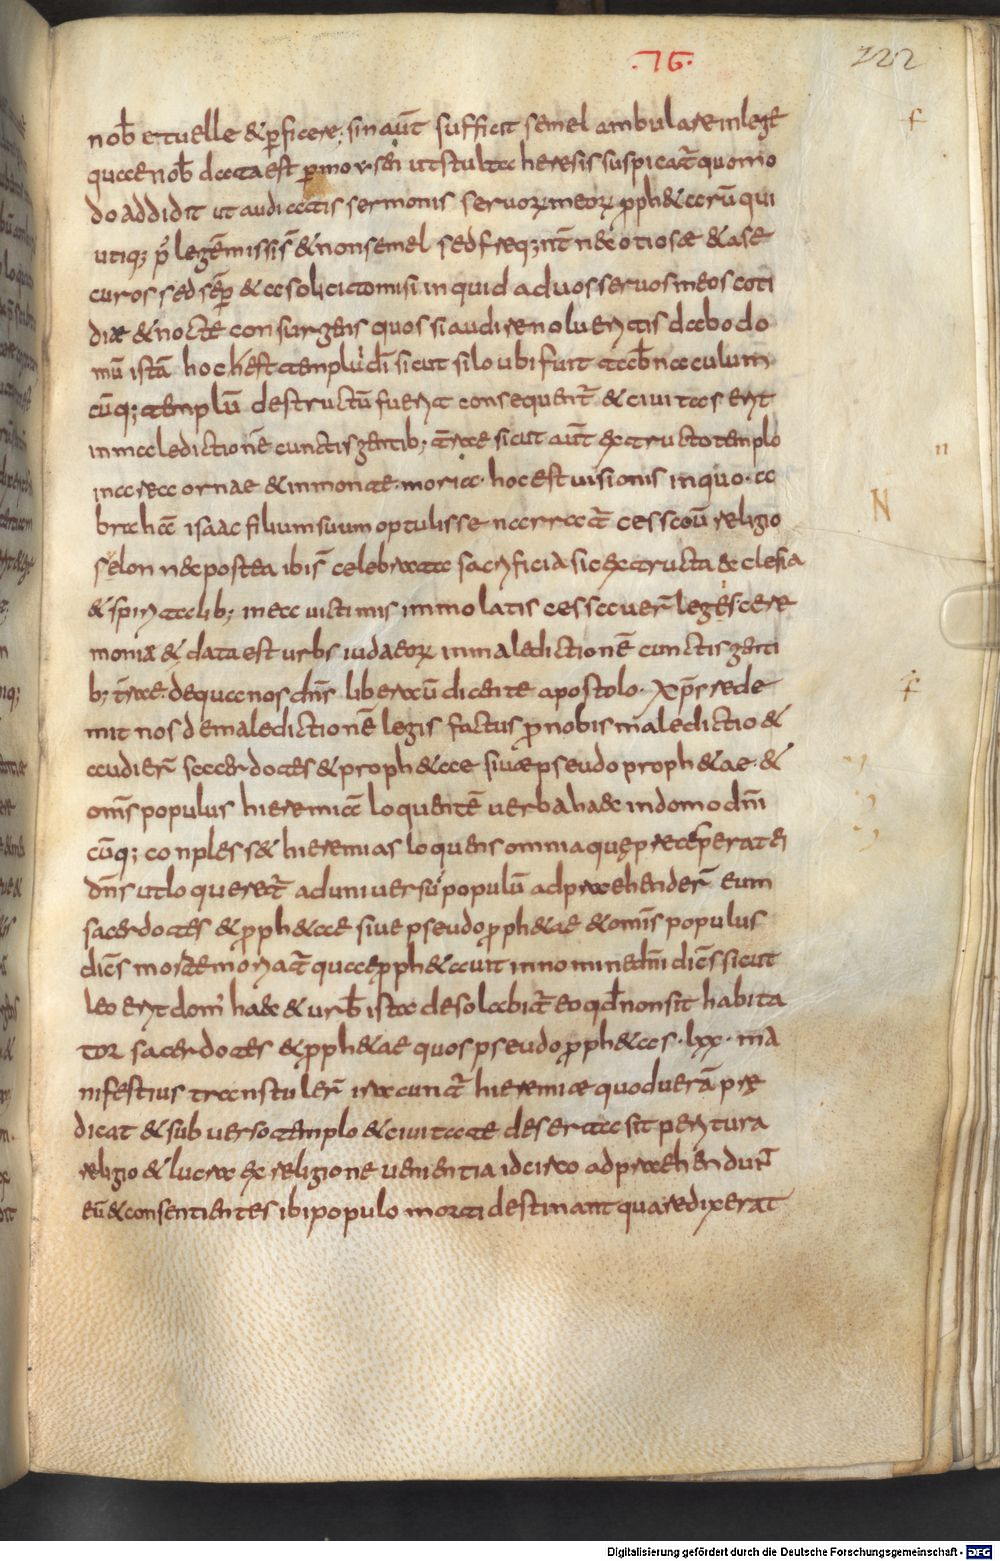 .76. 222
nob̄ et uelle & ꝑficere; sin aūt sufficit semel ambulare in lege
quae nob̄ data est ꝑ moysen ut stulta heresis suspicat̄ quomo
do addidit ut audiatis sermonis seruoꝝ meoꝝ ꝓph&arū qui
utiq; p̄ legē missis̄ & non semel sed freq;nt̄ nec otiosæ & ase
curos sed sēp & a solicito misi inquid ad uos seruos meos coti
diæ & nocte consurgens quos si audire nolueritis dabo do
mū istā hoc hest templū dī sicut silo ubi fuit tab̄naculum
cūq; templū destructū fuerit consequent̄ & ciuitas erit
in maledictionē cunctis gentib; t̄rae sicut aūt extructo templo
in area ornae & in monte moria hoc est uisionis in quo a
brahā isaac filium suum optulisse narrat̄ cessauīt religio
selon nec postea ibis̄ celebrata sacrificia sic extructa æclesia
& spiritalib; in ea uictimis immolatis cessauer̄ legęs cere
moniæ & data est urbs iudaeoꝝ in maledictionē cunctis genti
b; t̄rae de qua nos dn̄s liberauīt dicente apostolo xp̄s rede
mit nos de maledictionē legis factus ꝓ nobis maledictio &
audier̄ sacerdotes & proph&ae siuæ pseudoproph&ae &
omīs populus hieremiā loquentē uerba haec in domo dn̄i
cūq; conpless& hieremias loquens omnia quę preceperat ei
dn̄s ut loqueret̄ ad uniuersū populū adprehender̄ eum
sacerdotes & ꝓph&ae siue pseudoꝓph&ae & omīs populus
diēs morte moriat̄ qua ꝓph&auit in nomine dn̄i diēs sicut
leo erit dom' haec & urb̄ ista desolabit̄ eo qd̄ non sit habita
tor sacerdotes & ꝓph&ae quos pseudoꝓph&as .lxx. ma
nifestius transtuler̄ irascunt̄ hieremiæ quod uerā prę
dicat & subuerso templo & ciuitate deserta sit peritura
religio & lucra ex religione uenientia idcirco adprehendun̄t
eū & consentientes ibi populo morti destinant quare dixerat
N